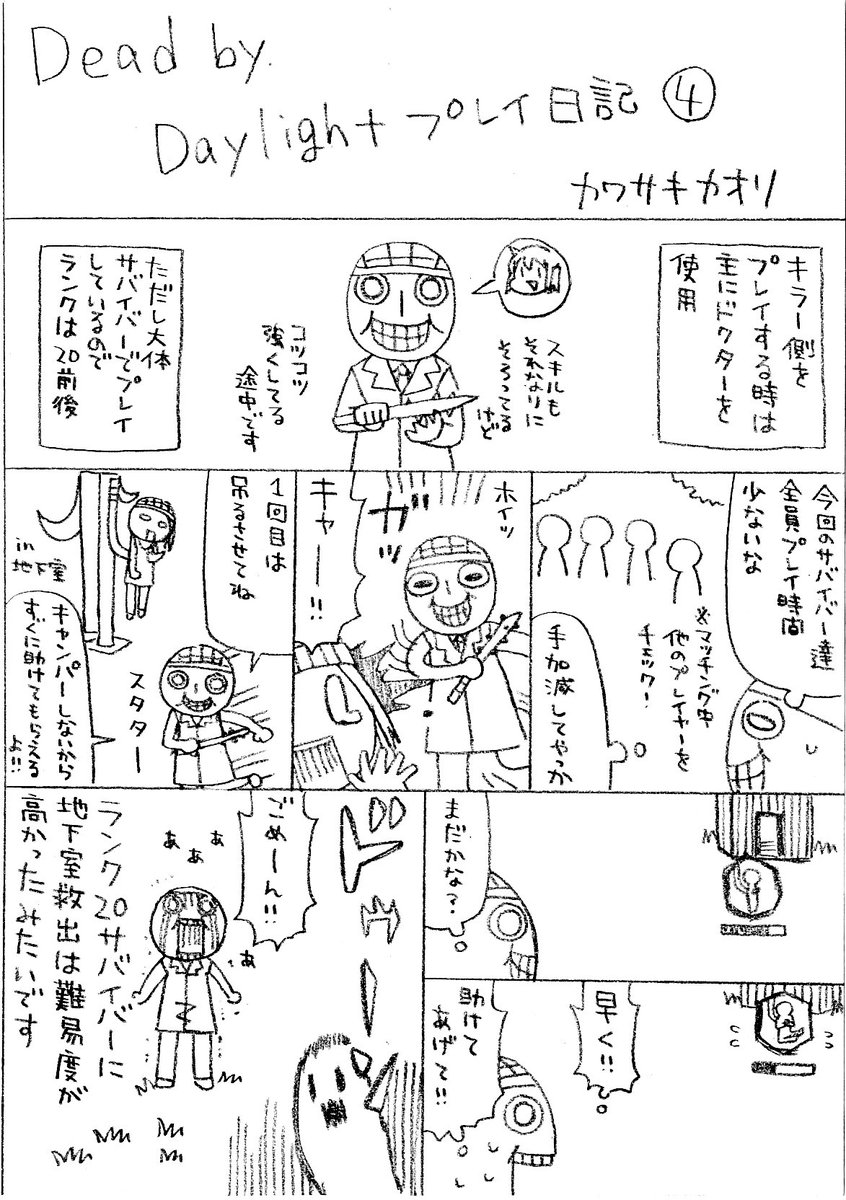 Dead by
Daylight プレイ日記 ④
カワサキカオリ
キラー側を
プレイする時は
主にドクターを
使用
スキルも
それなりに
そろってる
けど
コツコツ
強くしてる
途中です
ただし大体
サバイバーでプレイ
しているので
ランクは20前後
今回のサバイバー達
全員プレイ時間
少ないな
※マッチング中
他のプレイヤーを
チェック!
手加減してやっか
ホイッ
ガッ
キャー!!
1回目は
吊るさせてね
in
地下室
スタター
キャンパーしないから
すぐに助けてもらえる
よ!!
まだかな?
早く!!
助けて
あげて!!
ごめーん!!
あ
あ
あ
あ
ランク20サバイバーに
地下室救出は難易度が
高かったみたいです